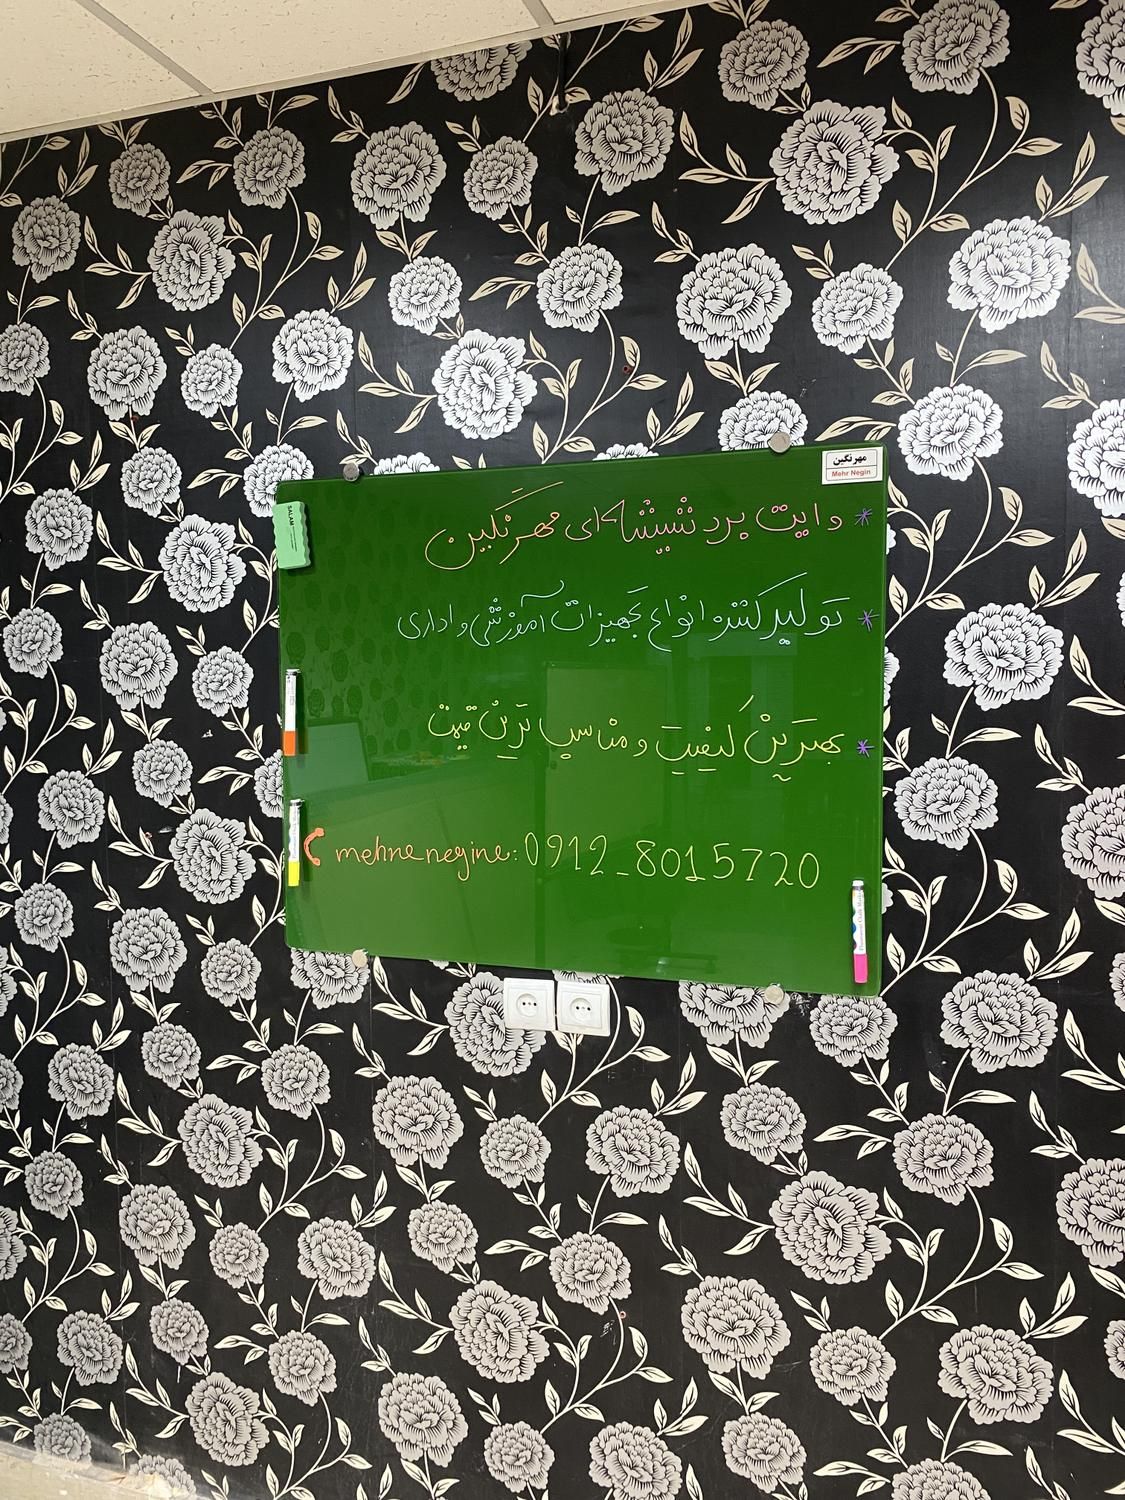 مهرنگین
Mehr Negin
SALAM
* وایت برد شیشه‌ای مهرنگین
* تولیدکننده انواع تجهیزات آموزشی و اداری
* بهترین کیفیت و مناسب ترین قیمت
mehrenegine: 0912_8015720